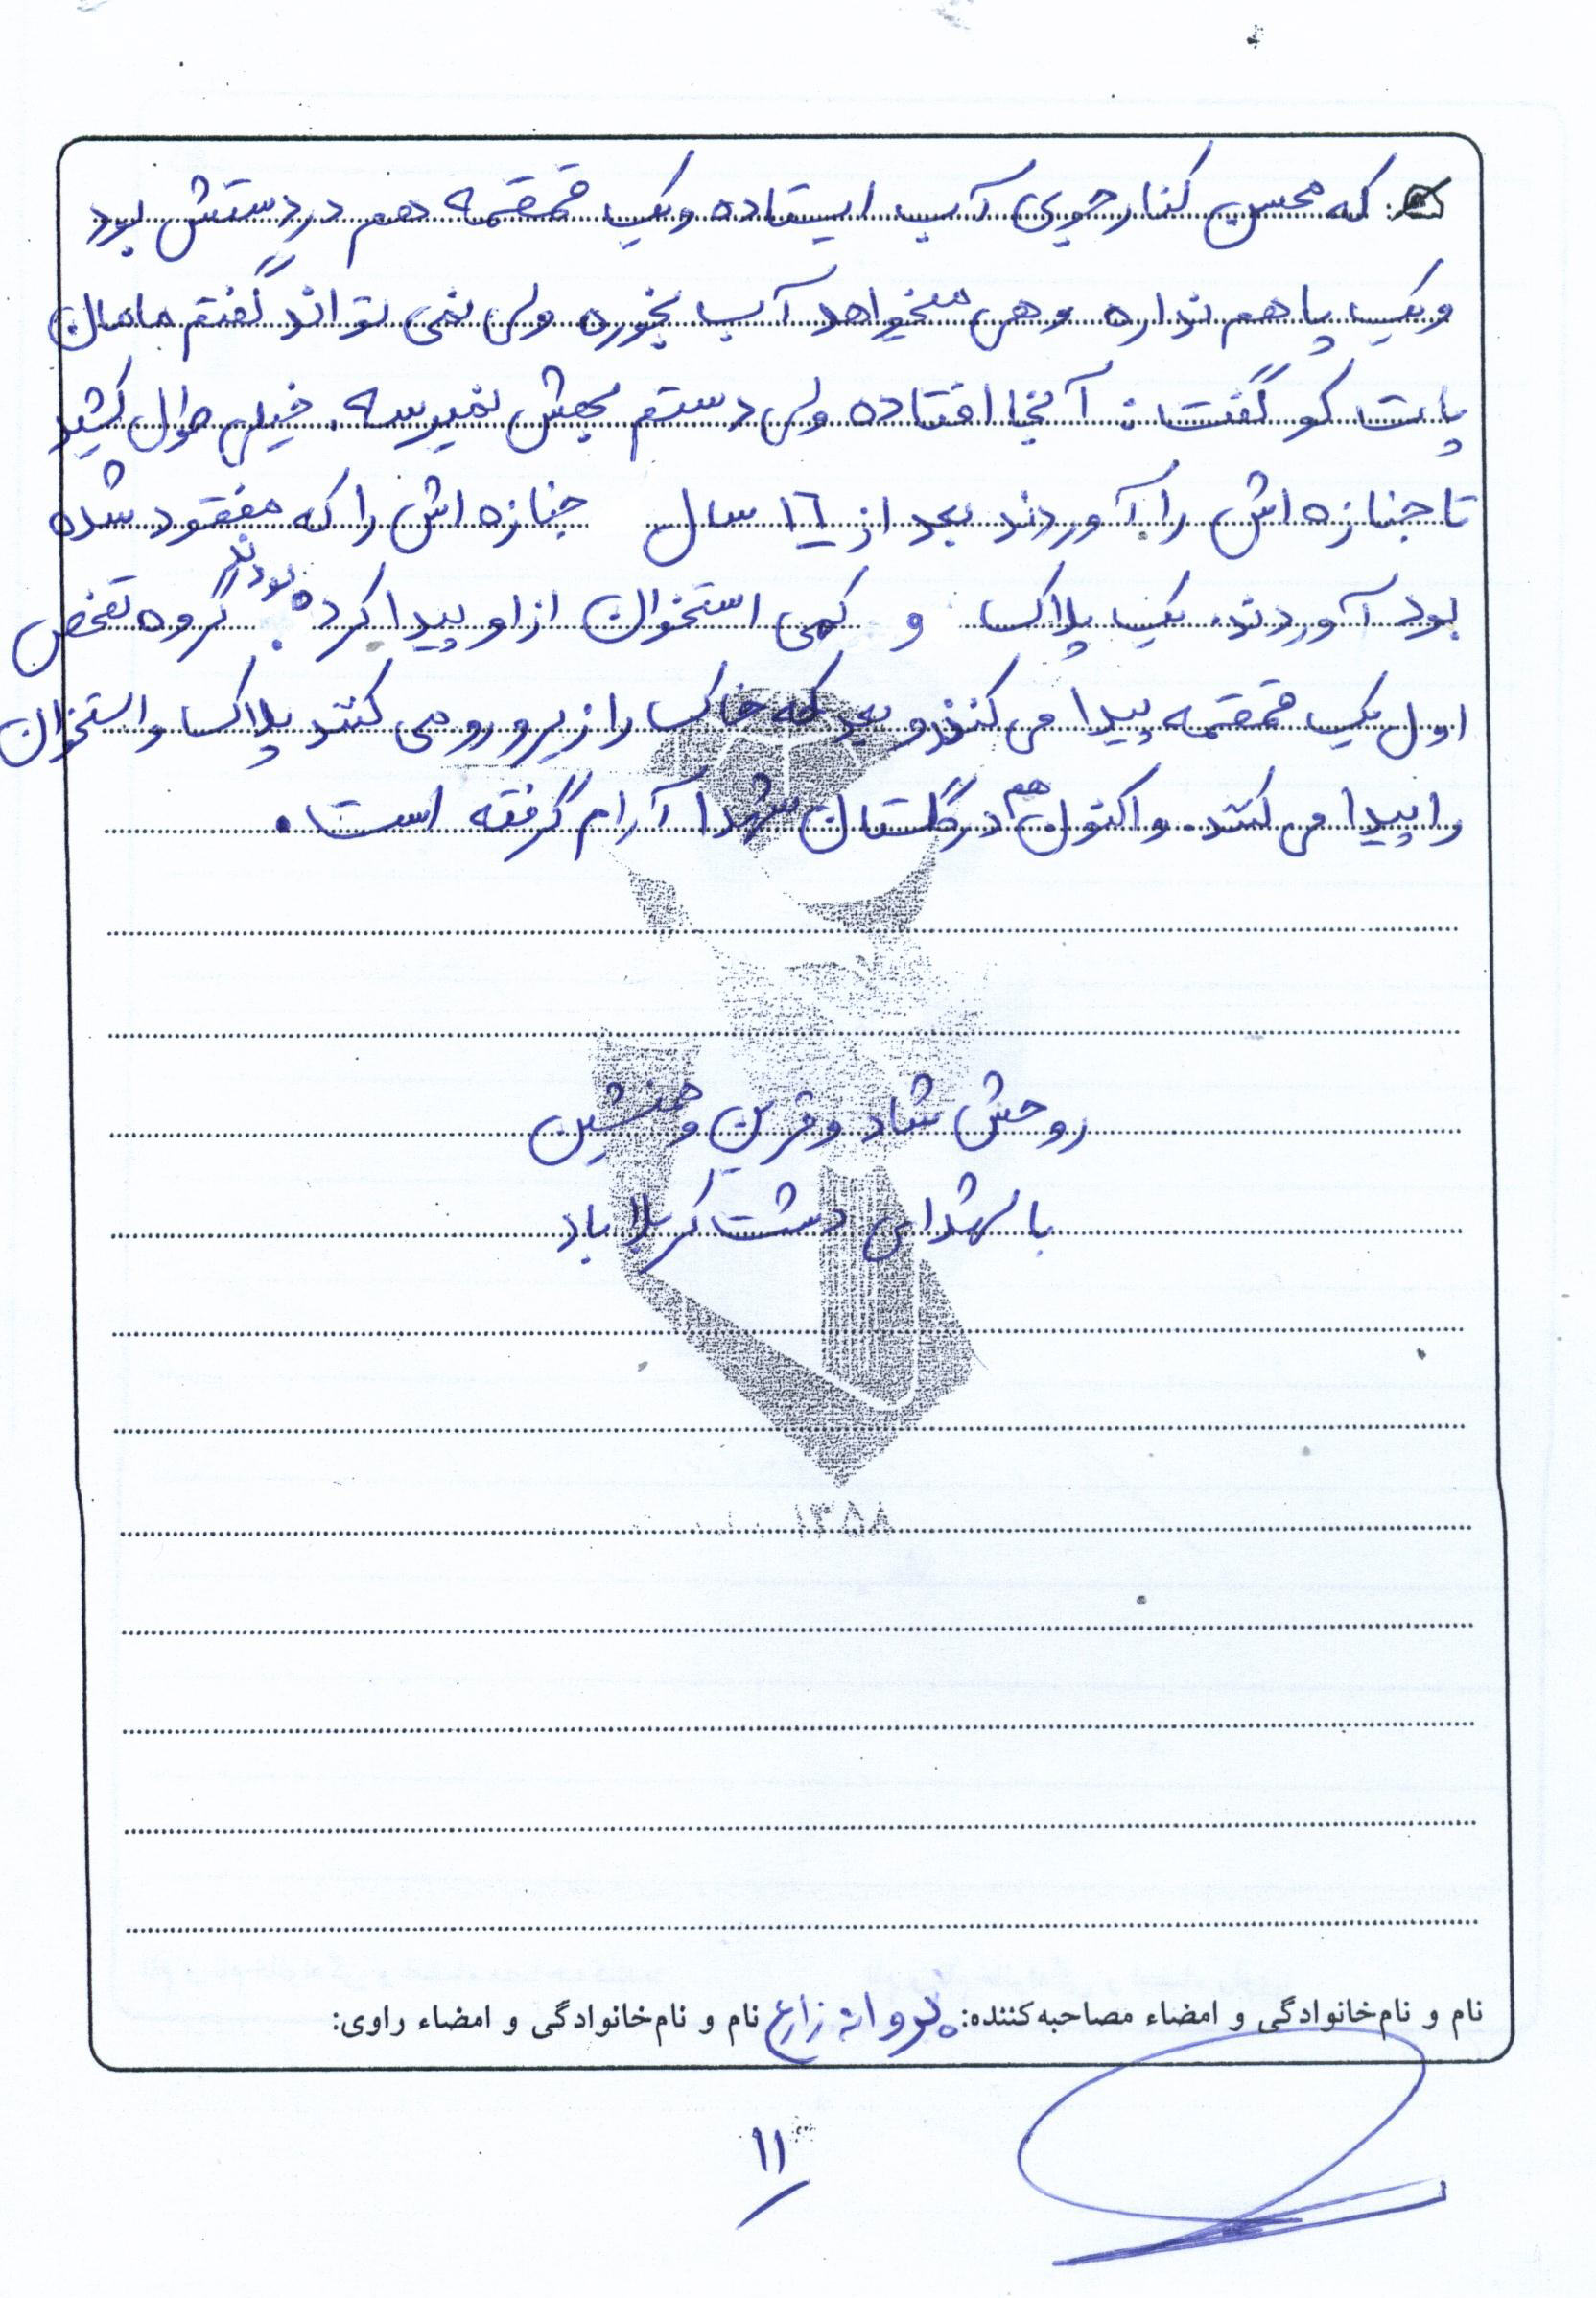 که محسن کنار جوی آب ایستاده و یک قمقمه هم در دستش بود
و یک پا هم نداره و هی میخواهد آب بخوره ولی نمی تواند گفتم مامان
پات کو گفت: آنجا افتاده ولی دستم بهش نمیرسه. خیلی طول کشید
تا جنازه اش را آوردند بعد از ١٦ سال جنازه اش را که مفقود شده
بود آوردند. یک پلاک و کمی استخوان از او پیدا کرده بودند. گروه تفحص
اول یک قمقمه پیدا می کنند و بعد که خاک را زیر و رو می کنند پلاک و استخوان
را پیدا می کنند. و اکنون هم در گلستان شهدا آرام گرفته است.
روحش شاد و قرین و همنشین
با شهدای دشت کربلا باد
۱۳۵۸
نام و نام‌خانوادگی و امضاء مصاحبه‌کننده: پروانه زارع نام و نام‌خانوادگی و امضاء راوی:
۱۱